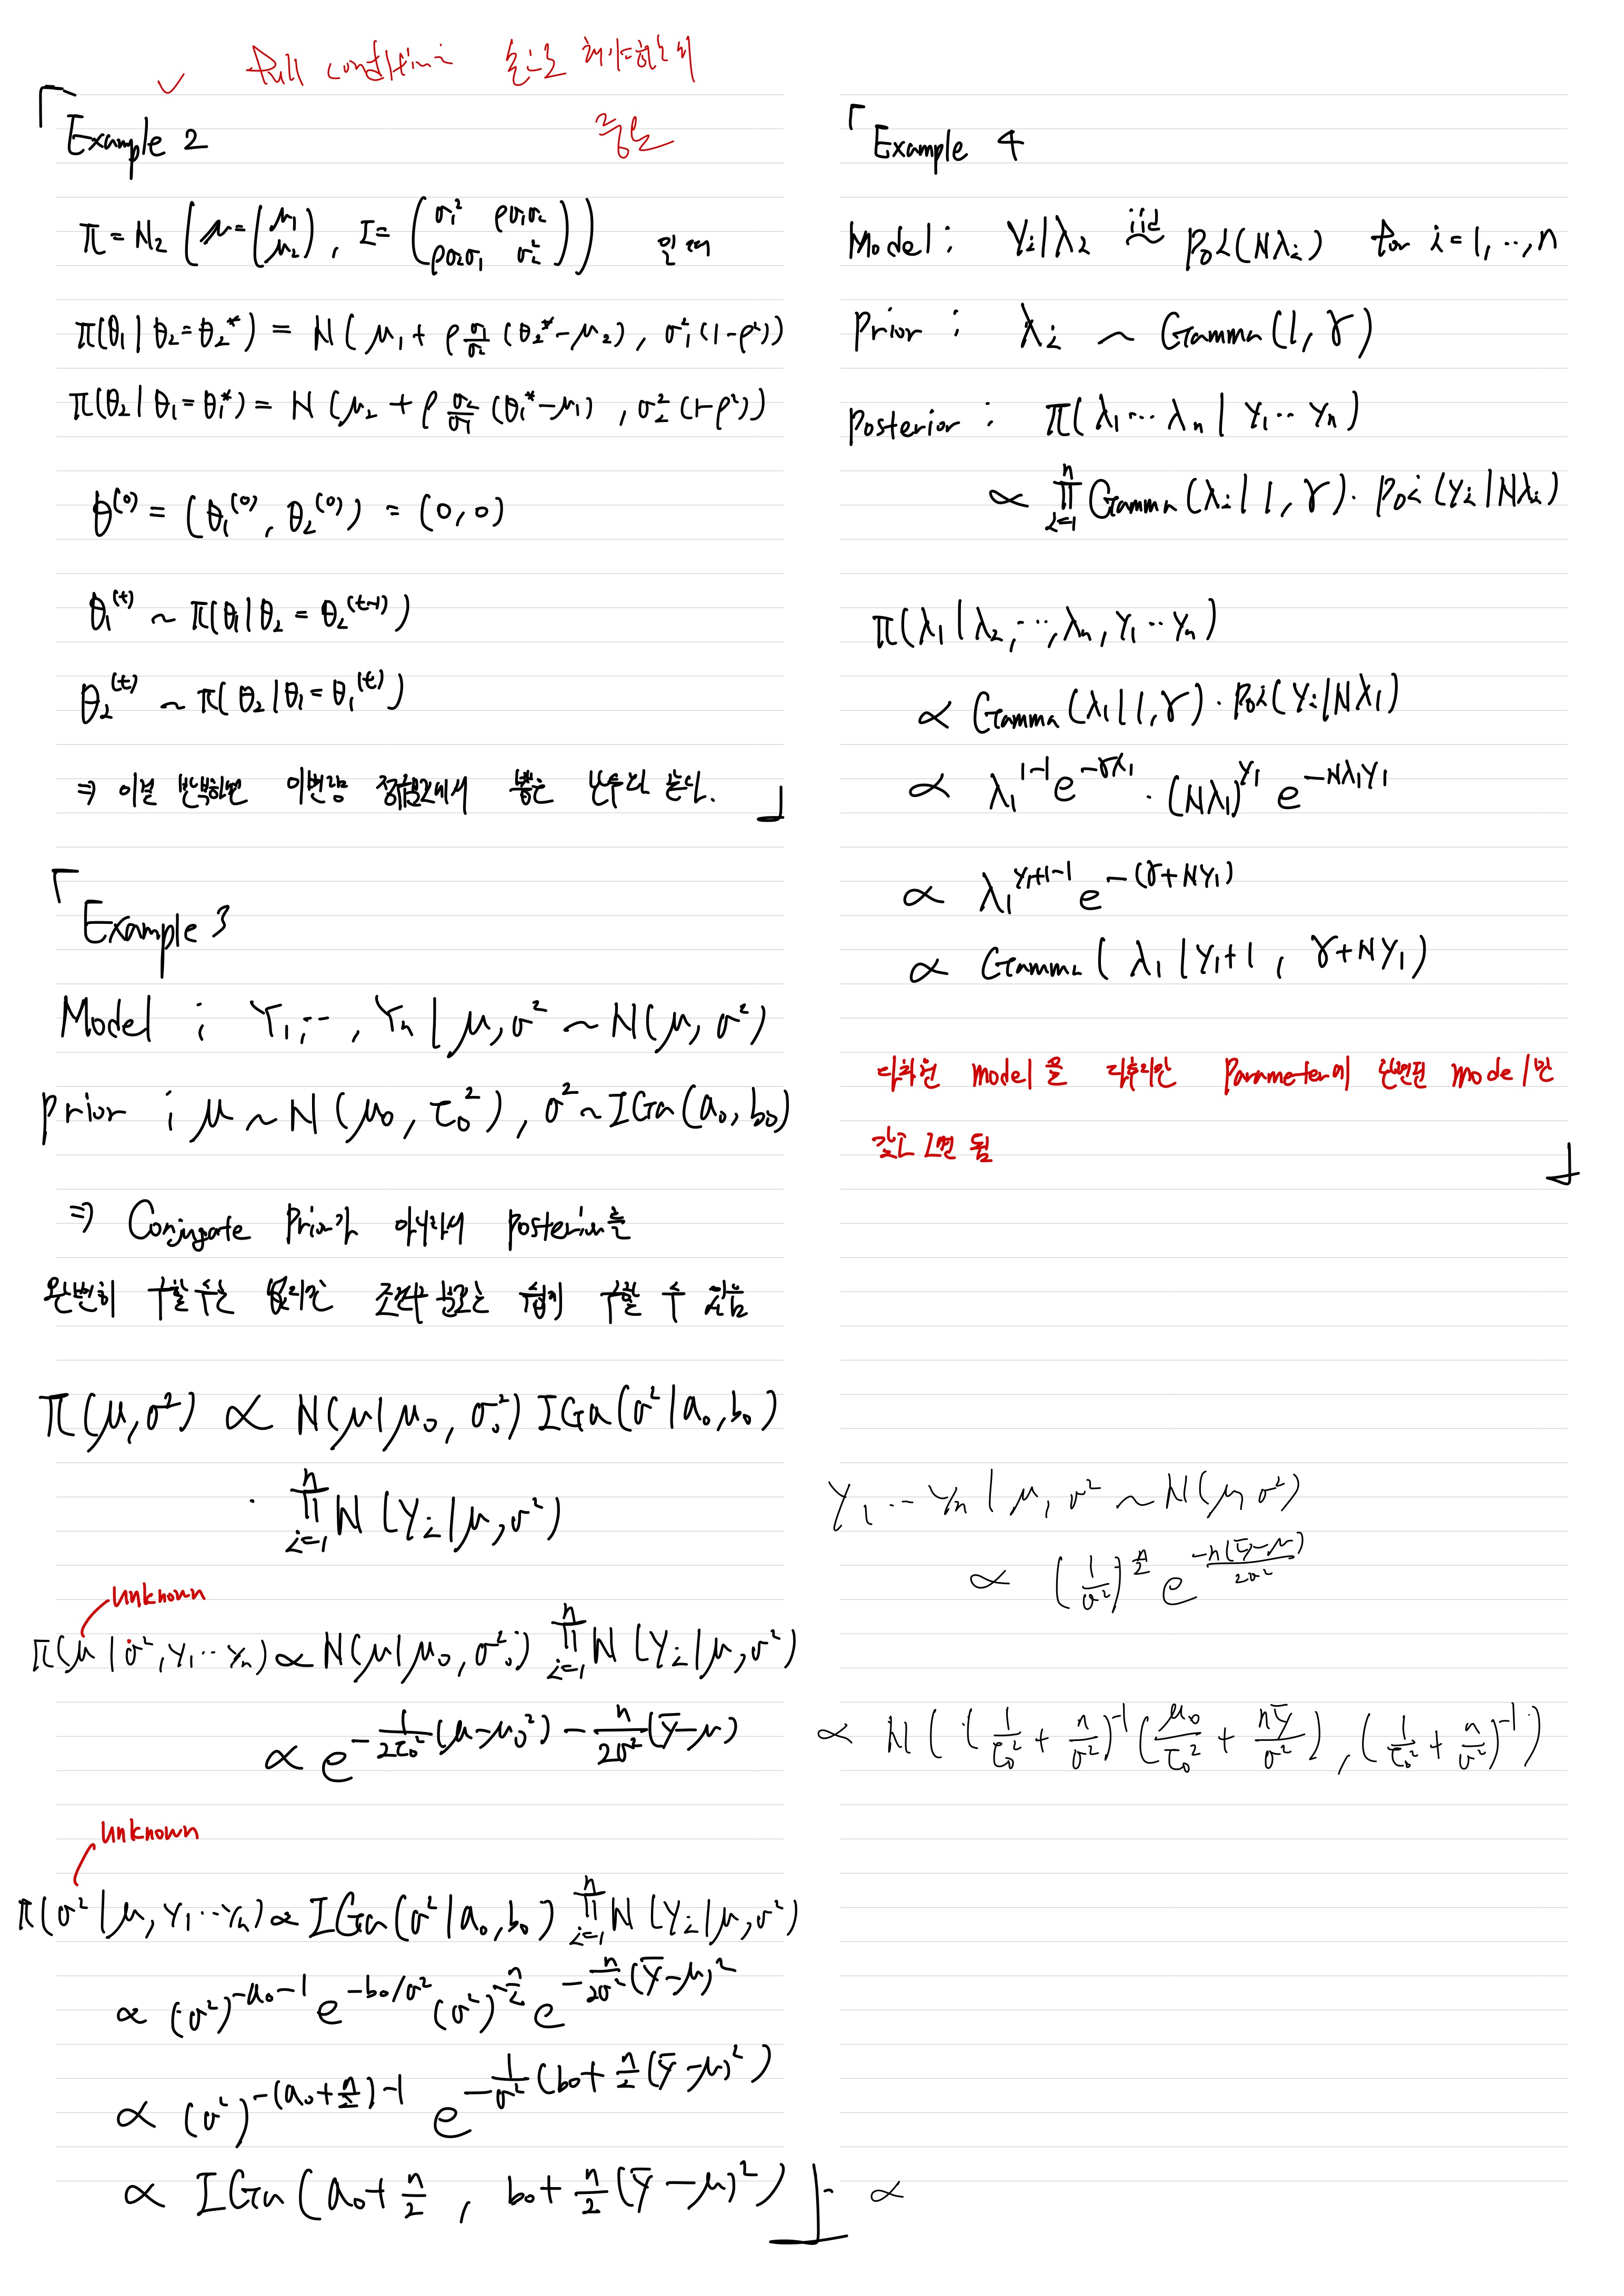 ✓ full condition 손으로 해야하는데
중요
「Example 2
π = N₂ ( μ = (μ₁ μ₂), Σ = (σ₁² ρσ₁σ₂ ρσ₂σ₁ σ₂²)) 일 때
π(θ₁ | θ₂ = θ₂*) = N( μ₁ + ρ σ₁/σ₂ (θ₂* - μ₂), σ₁²(1-ρ²))
π(θ₂ | θ₁ = θ₁*) = N (μ₂ + ρ σ₂/σ₁ (θ₁* - μ₁), σ₂²(1-ρ²))
θ⁽⁰⁾ = (θ₁⁽⁰⁾, θ₂⁽⁰⁾) = (0, 0)
θ₁⁽ᵗ⁾ ~ π(θ₁ | θ₂ = θ₂⁽ᵗ⁻¹⁾)
θ₂⁽ᵗ⁾ ~ π(θ₂ | θ₁ = θ₁⁽ᵗ⁾)
⇒ 이걸 반복하면 이변량 정규분포에서 뽑은 난수와 같다. 」
「Example 3
Model ; Y₁, ··, Yₙ | μ, σ² ~ N(μ, σ²)
prior ; μ ~ N(μ₀, τ₀²), σ² ~ IGa(a₀, b₀)
⇒ Conjugate Prior가 아니라서 posterior를
완벽히 구할 수는 없지만 조건부 분포는 쉽게 구할 수 있음
π(μ, σ²) ∝ N(μ | μ₀, σ₀²) IGa(σ² | a₀, b₀)
· ∏ᵢ₌₁ⁿ N(Yᵢ | μ, σ²)
unknown
π(μ | σ², Y₁ ··· Yₙ) ∝ N(μ | μ₀, σ₀²) ∏ᵢ₌₁ⁿ N(Yᵢ | μ, σ²)
∝ e^{-1/2τ₀² (μ-μ₀²) - n/2σ² (Ȳ-μ)}
unknown
π(σ² | μ, Y₁ ··· Yₙ) ∝ IGa(σ² | a₀, b₀) ∏ᵢ₌₁ⁿ N(Yᵢ | μ, σ²)
∝ (σ²)^{-a₀-1} e^{-b₀/σ²} (σ²)^{-n/2} e^{-n/2σ² (Ȳ-μ)²}
∝ (σ²)^{-(a₀+n/2)-1} e^{-1/σ² (b₀ + n/2 (Ȳ-μ)²)}
∝ IGa(a₀ + n/2, b₀ + n/2 (Ȳ-μ)²) 」
「Example 4
Model ; Yᵢ | λᵢ iid ~ Poi(Nλᵢ) for i = 1, ··, n
Prior ; λᵢ ~ Gamma(1, γ)
Posterior ; π(λ₁ ··· λₙ | Y₁ ·· Yₙ)
∝ ∏ᵢ₌₁ⁿ Gamma(λᵢ | 1, γ) · Poi(Yᵢ | Nλᵢ)
π(λ₁ | λ₂, ··, λₙ, Y₁ ·· Yₙ)
∝ Gamma(λ₁ | 1, γ) · Poi(Yᵢ | Nλ₁)
∝ λ₁^{1-1} e^{-γλ₁} · (Nλ₁)^{Y₁} e^{-Nλ₁Y₁}
∝ λ₁^{Y₁+1-1} e^{-(γ+NY₁)}
∝ Gamma(λ₁ | Y₁+1, γ+NY₁)
다차원 model을 다루지만 Parameter에 관련된 model만
갖고오면 됨 」
Y₁ ··· Yₙ | μ, σ² ~ N(μ, σ²)
∝ (1/σ²)^{n/2} e^{-n(Ȳ-μ)/2σ²}
∝ N( (1/τ₀² + n/σ²)⁻¹ (μ₀/τ₀² + nȲ/σ²), (1/τ₀² + n/σ²)⁻¹)
∝